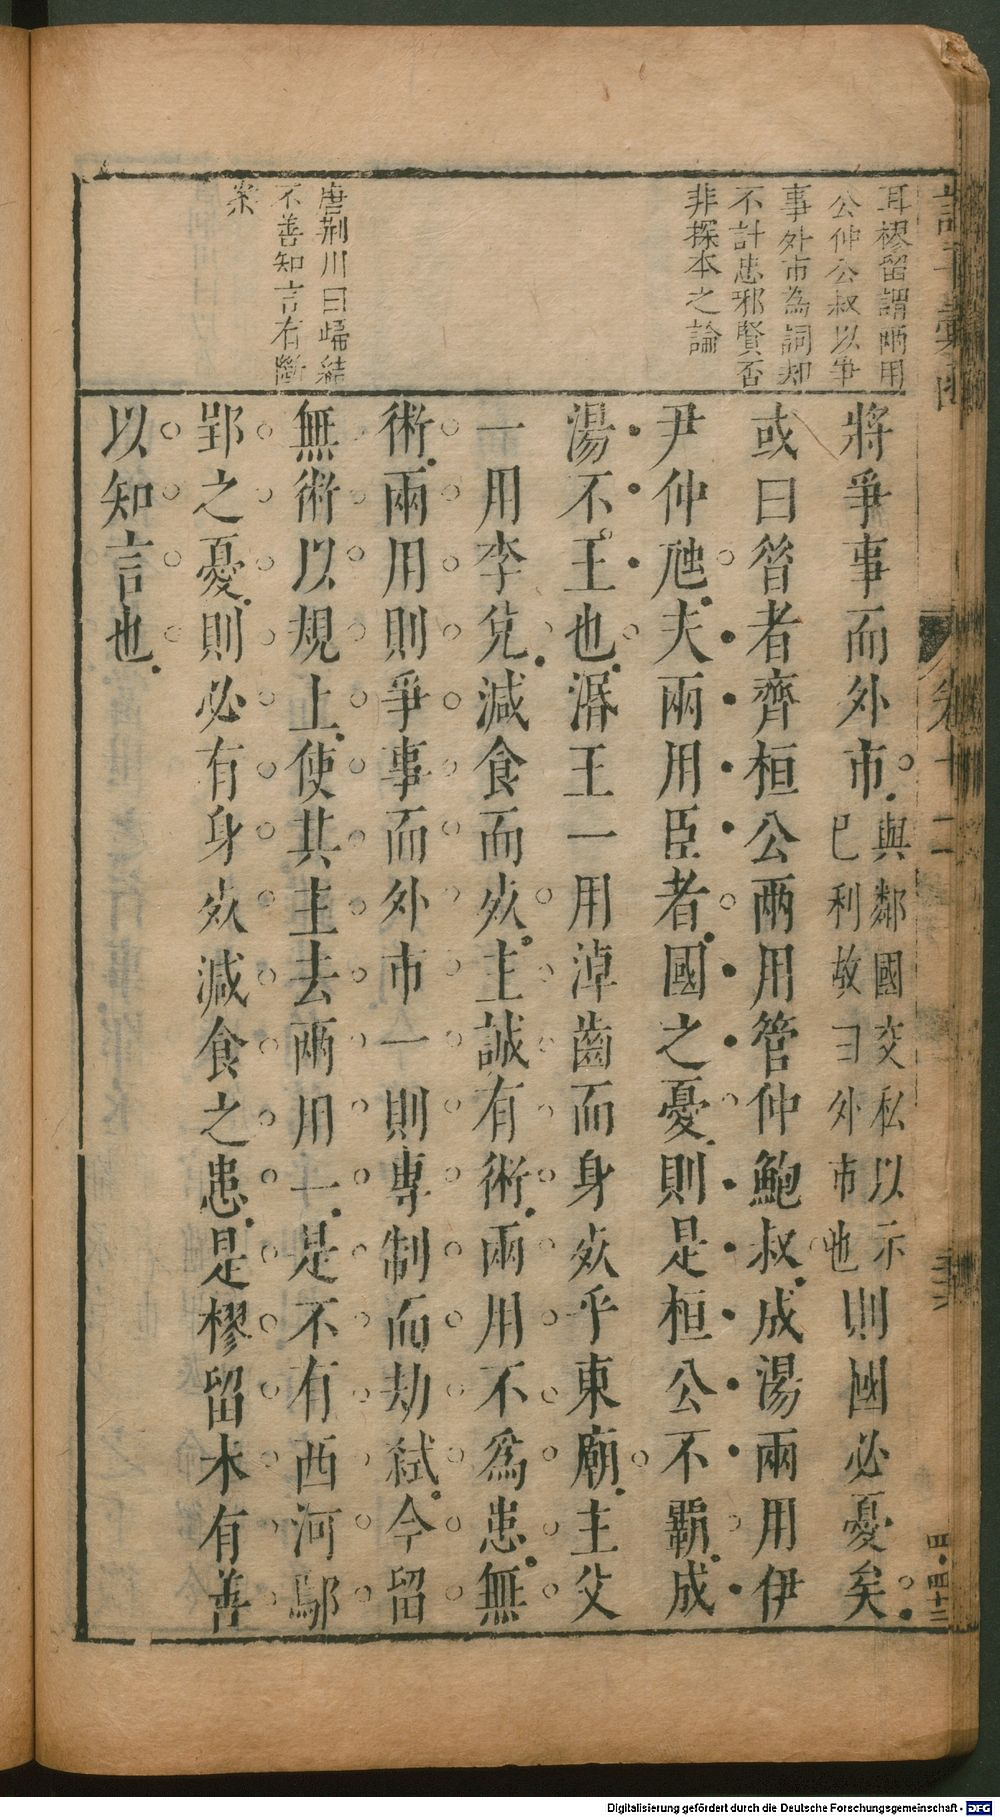 耳樛留謂兩用
公仲公叔以爭
事外市為詞却
不計忠邪賢否
非探本之論
唐荊川曰歸結
不善知言有斷
案
將爭事而外市與鄰國交私以示
己利故曰外市也則國必憂矣
或曰昝者齊桓公兩用管仲鮑叔成湯兩用伊
尹仲虺夫兩用臣者國之憂則是桓公不覇成
湯不王也湣王一用淖齒而身歿乎東廟主父
一用李兌減食而歿主誠有術兩用不為患無
術兩用則爭事而外市一則專制而劫弒今留
無術以規上使其主去兩用一是不有西河鄢
郢之憂則必有身歿減食之患是樛留未有善
以知言也
卷十二
四·四十三
Digitalisierung gefördert durch die Deutsche Forschungsgemeinschaft - DFG